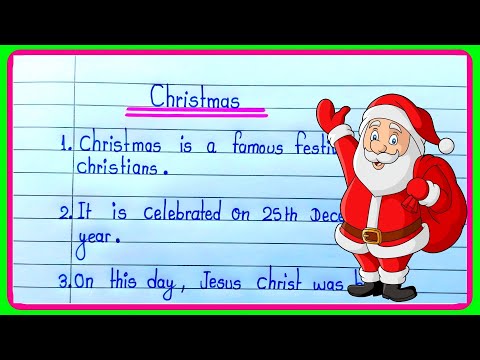 Christmas
1. Christmas is a famous festi
christians.
2. It is celebrated on 25th Dece
year.
3. On this day, Jesus Christ was